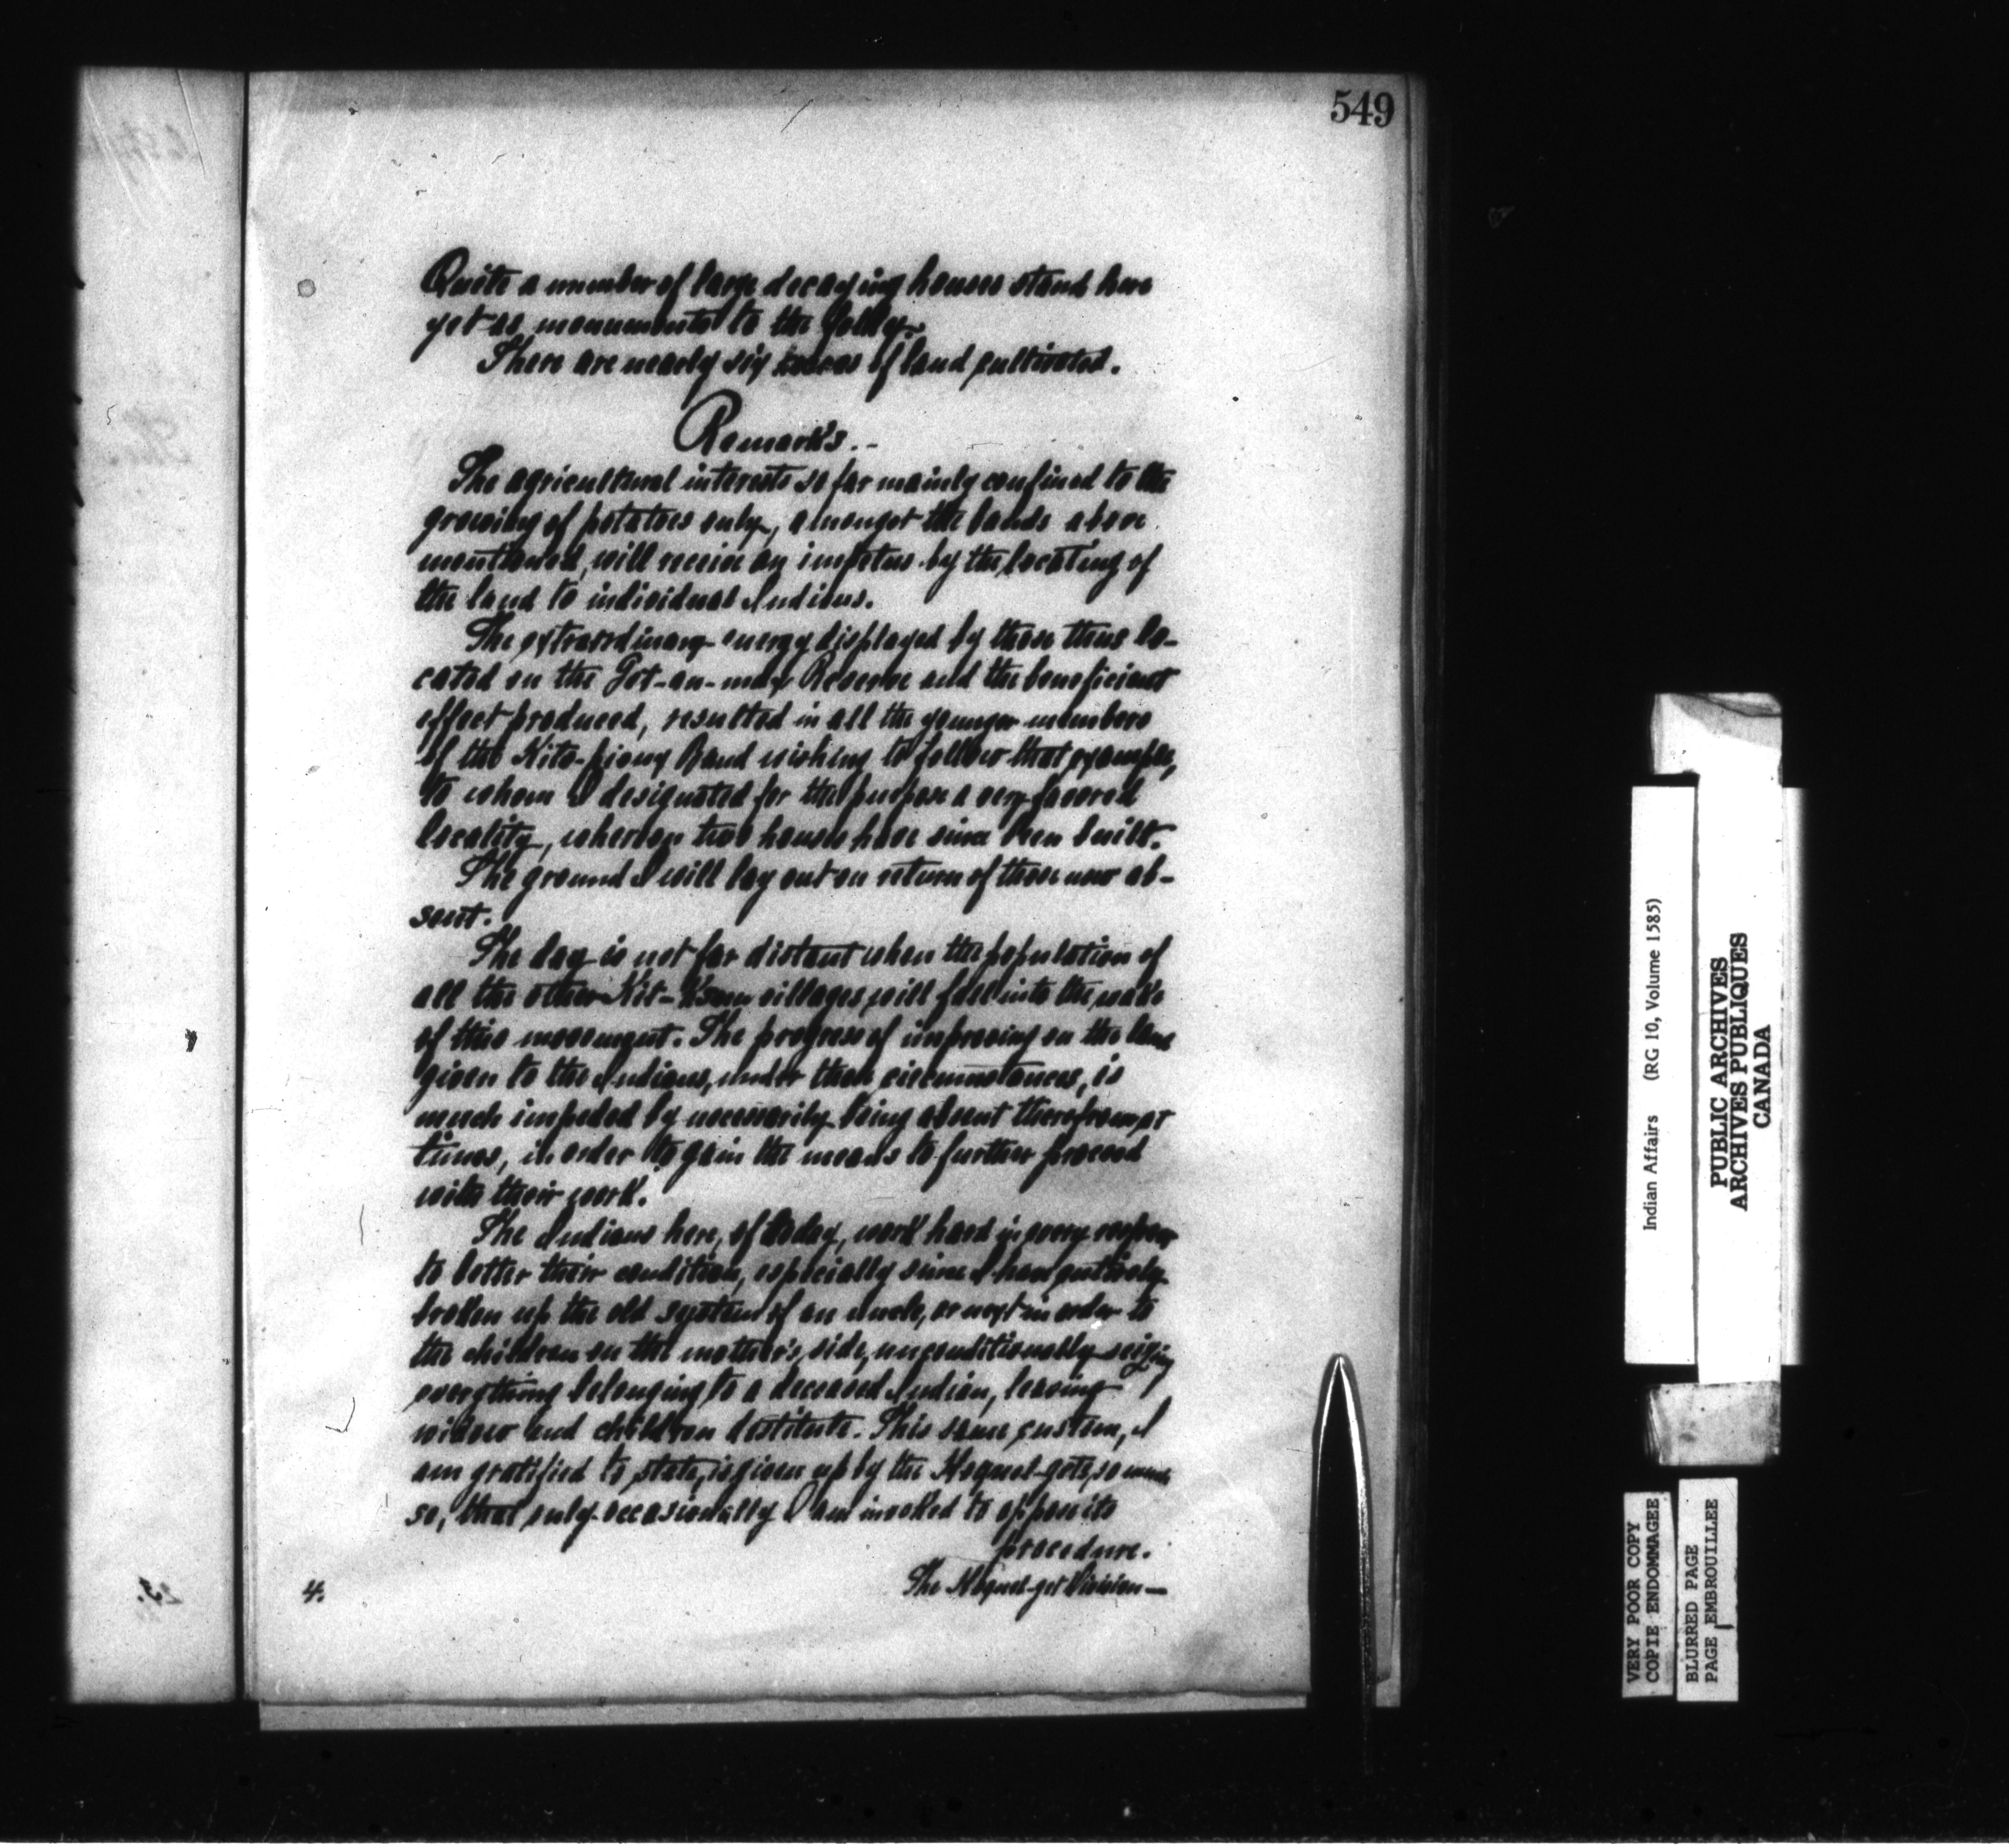 549
Quite a number of large decaying houses stand here
yet as monuments to the folly.
There are nearly six acres of land cultivated.
Remarks.-
The agricultural interests so far mainly confined to the
growing of potatoes only, amongst the bands above
mentioned, will receive an impetus by the locating of
the land to individual Indians.
The extraordinary energy displayed by those thus lo-
cated on the Get-an-max Reserve and the beneficient
effect produced, resulted in all the younger members
of the Kits-pioux Band wishing to follow that example,
to whom I designated for the purpose a very favored
locality, whereon two houses have since been built.
The ground I will lay out on return of those now ab-
sent.
The day is not far distant when the population of
all the other Kit-Ksun villages will fall into the wake
of this movement. The progress of improving on the land
given to the Indians, under these circumstances, is
much impeded by necessarily being absent therefrom at
times, in order to gain the means to further proceed
with their work.
The Indians here, of today, work hard in every respect
to better their condition, especially since I have entirely
broken up the old system of an uncle, or next in order to
the children on the mother's side, unconditionally seizing
everything belonging to a deceased Indian, leaving
widow and children destitute. This same custom, I
am gratified to state, is given up by the Hoquel-gets, so much
so, that only occasionally I am invoked to oppose its
procedure.
4.
The Hoquel-get Division—
Indian Affairs (RG 10, Volume 1585)
PUBLIC ARCHIVES
ARCHIVES PUBLIQUES
CANADA
VERY POOR COPY
COPIE ENDOMMAGEE
BLURRED PAGE
PAGE EMBROUILLEE